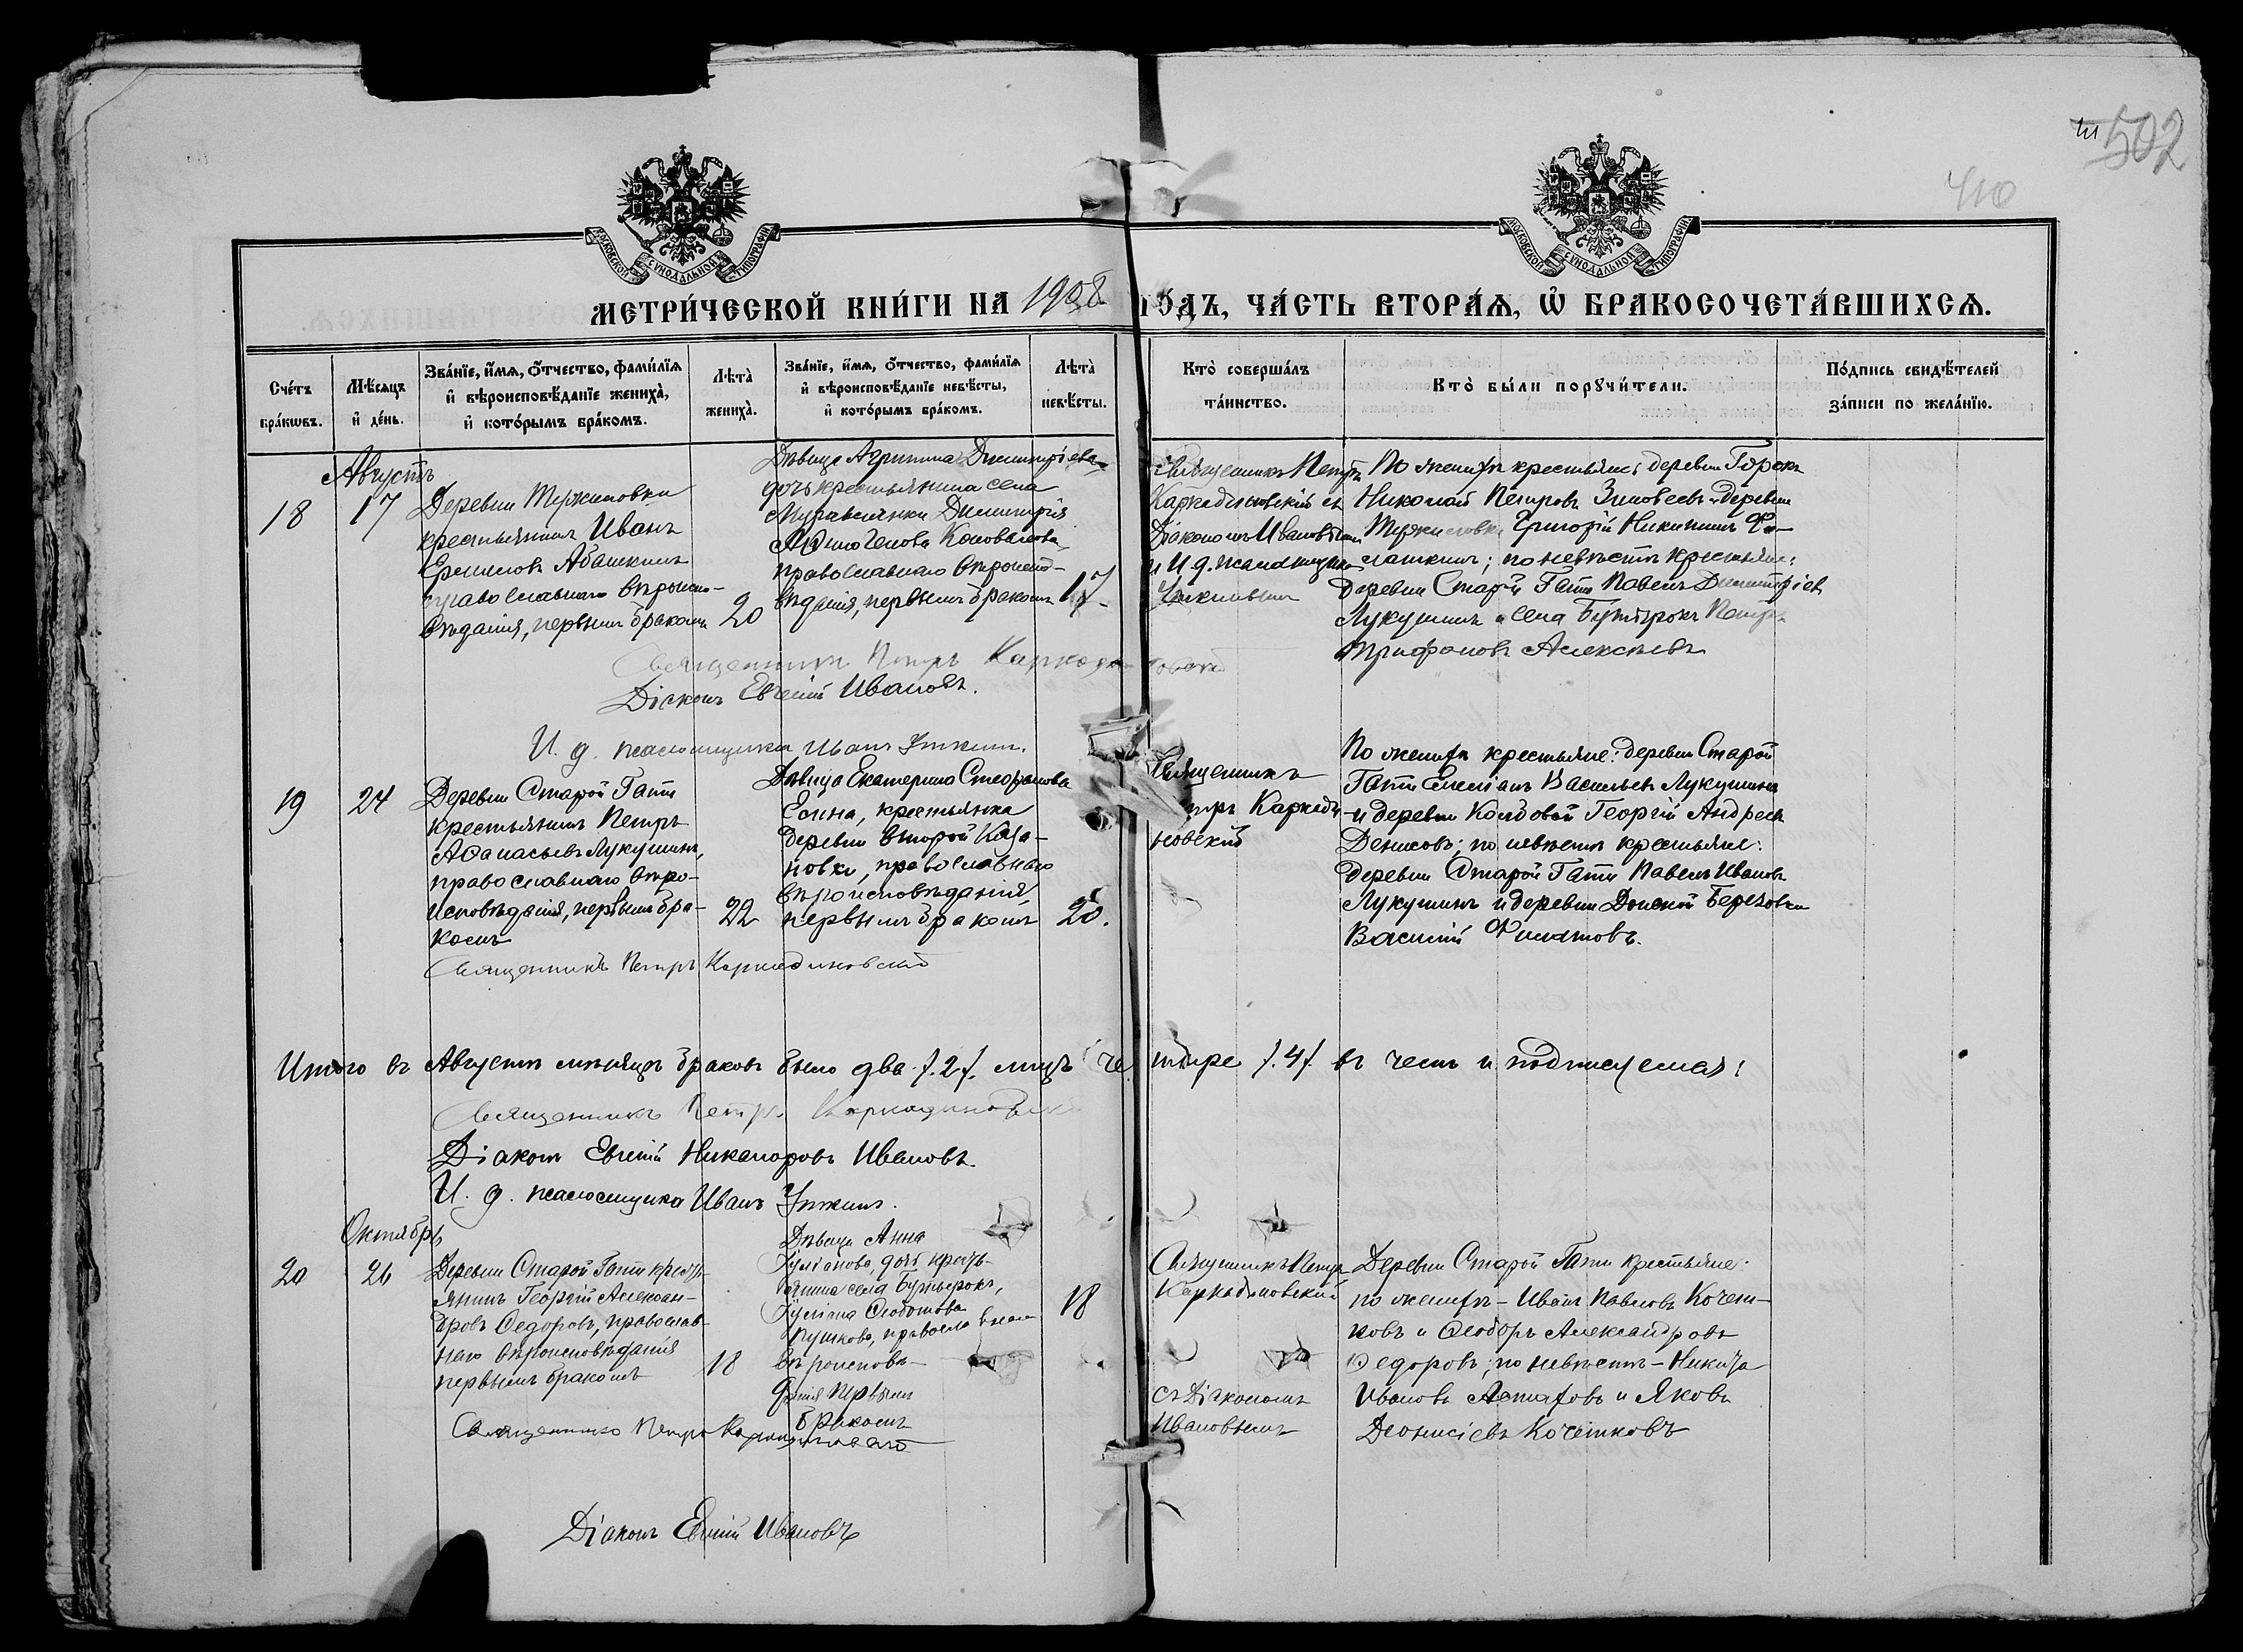 502
410
МОСКОВСКОЙ СѴНОДАЛЬНОЙ ТИПОГРАФІИ
МОСКОВСКОЙ СѴНОДАЛЬНОЙ ТИПОГРАФІИ
МЕТРИ́ЧЕСКОЙ КНИ́ГИ НА 1908 ГО́ДЪ, ЧА́СТЬ ВТОРА́Я, Ѽ БРАКОСОЧЕТА́ВШИХСѦ.
Сче́тъ
бра́кѡвъ.
Мѣ́сяцъ
и҆ де́нь.
Зва́нїе, и҆́мѧ, ѻ҆́тчество, фами́лїѧ
и҆ вѣроисповѣ́данїе жениха̀,
и҆ кото́рымъ бра́комъ.
Лѣ́та̀
жениха̀.
Зва́нїе, и҆́мѧ, ѻ҆́тчество, фами́лїѧ
и҆ вѣроисповѣ́данїе невѣ́сты,
и҆ кото́рымъ бра́комъ.
Лѣ́та̀
невѣ́сты.
Кто̀ соверша́лъ
та́инство.
Кто̀ бы́ли порꙋчи́тели.
По́дпись свидѣ́телей
за́писи по жела́нїю.
Августъ
18
17
Деревни Тержиловки
крестьянинъ Иванъ
Абашкинъ
православнаго вѣроиспо-
вѣданія, первымъ бракомъ
20
Дѣвица Агрипина Димитріева
дочь крестьянина села
Муравлянки Димитрія
Коновалова,
православнаго вѣроиспо-
вѣданія, первымъ бракомъ
17
Священникъ Петръ
Каркадиновскій съ
Діакономъ Ивановымъ
и И. д. псаломщика
По женихѣ крестьяне: деревни Горокъ
Николай Петровъ Зиновьевъ и деревни
Тержиловки Григорій Никитинъ
; по невѣстѣ крестьяне:
деревни Старой Гати Павелъ Димитріевъ
Лукушинъ и села Бутырокъ Петръ
Трифоновъ Алексѣевъ
Священникъ Петръ Каркадиновскій
Діаконъ Евгеній Ивановъ.
И. д. псаломщика Иванъ
19
24
Деревни Старой Гати
крестьянинъ Петръ
Аѳанасьевъ Лукушинъ,
православнаго вѣро-
исповѣданія, первымъ бра-
комъ
22
Дѣвица Екатерина Стефанова
Елина, крестьянка
деревни второй Каза-
новки, православнаго
вѣроисповѣданія,
первымъ бракомъ
20.
Священникъ
Петръ Каркади-
новскій
По женихѣ крестьяне: деревни Старой
Гати Васильевъ Лукушинъ
и деревни Колдовой Георгій Андреевъ
Денисовъ; по невѣстѣ крестьяне:
деревни Старой Гати Павелъ Ивановъ
Лукушинъ и деревни Донской Березовки
Василій Филатовъ.
Священникъ Петръ Каркадиновскій
Итого въ Августѣ мѣсяцѣ браковъ было два /.2/. лицъ четыре /.4/. въ чемъ и подписуемся:
Священникъ Петръ Каркадиновскій
Діаконъ Евгеній Никаноровъ Ивановъ
И. д. псаломщика Иванъ
Октябрь
20
26
Деревни Старой Гати кресть-
янинъ Георгій Алексан-
дровъ Ѳедоровъ, православ-
наго вѣроисповѣданія
первымъ бракомъ
18
Дѣвица Анна
Іуліанова, дочь кресть-
янина села Бутырокъ,
Іуліана Ѳеодотова
Пушкова, православнаго
вѣроисповѣ-
данія первымъ
бракомъ
18
Священникъ Петръ
Каркадиновскій
съ Діакономъ
Ивановымъ
Деревни Старой Гати крестьяне:
по женихѣ - Иванъ Павловъ Кочет-
ковъ и Ѳеодоръ Александровъ
Ѳедоровъ; по невѣстѣ - Никита
Ивановъ Астаховъ и Яковъ
Деонисіевъ Кочетковъ
Священникъ Петръ Каркадиновскій
Діаконъ Евгеній Ивановъ